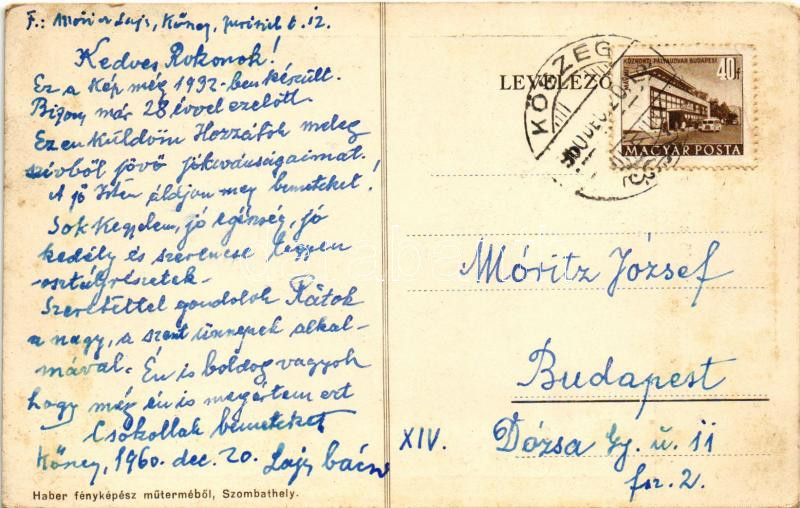 F.: Móricz Lajos, Kőszeg,
Kedves Rokonok!
Ez a Kép még 1932-ben készült.
Bizony már 28 évvel ezelőtt.
Ezen küldöm Hozzátok meleg
szívből jövő jókívánságaimat.
A jó Isten áldjon meg benneteket!
Sok Kegyelem, jó egészség, jó
kedély és szerencse legyen
osztályrészetek.
Szeretettel gondolok Rátok
a nagy, a szent ünnepek alkal-
mával. Én is boldog vagyok
hogy még én is megértem ezt
Csókollak benneteket
Kőszeg, 1960. dec. 20. Lajos bácsi
Haber fényképész műterméből, Szombathely.
LEVELEZŐ
KŐSZEG
KÖZPONTI PÁLYAUDVAR BUDAPEST
40f
MAGYAR POSTA
Móritz József
Budapest
XIV. Dózsa Gy. ú. 11
fsz. 2.